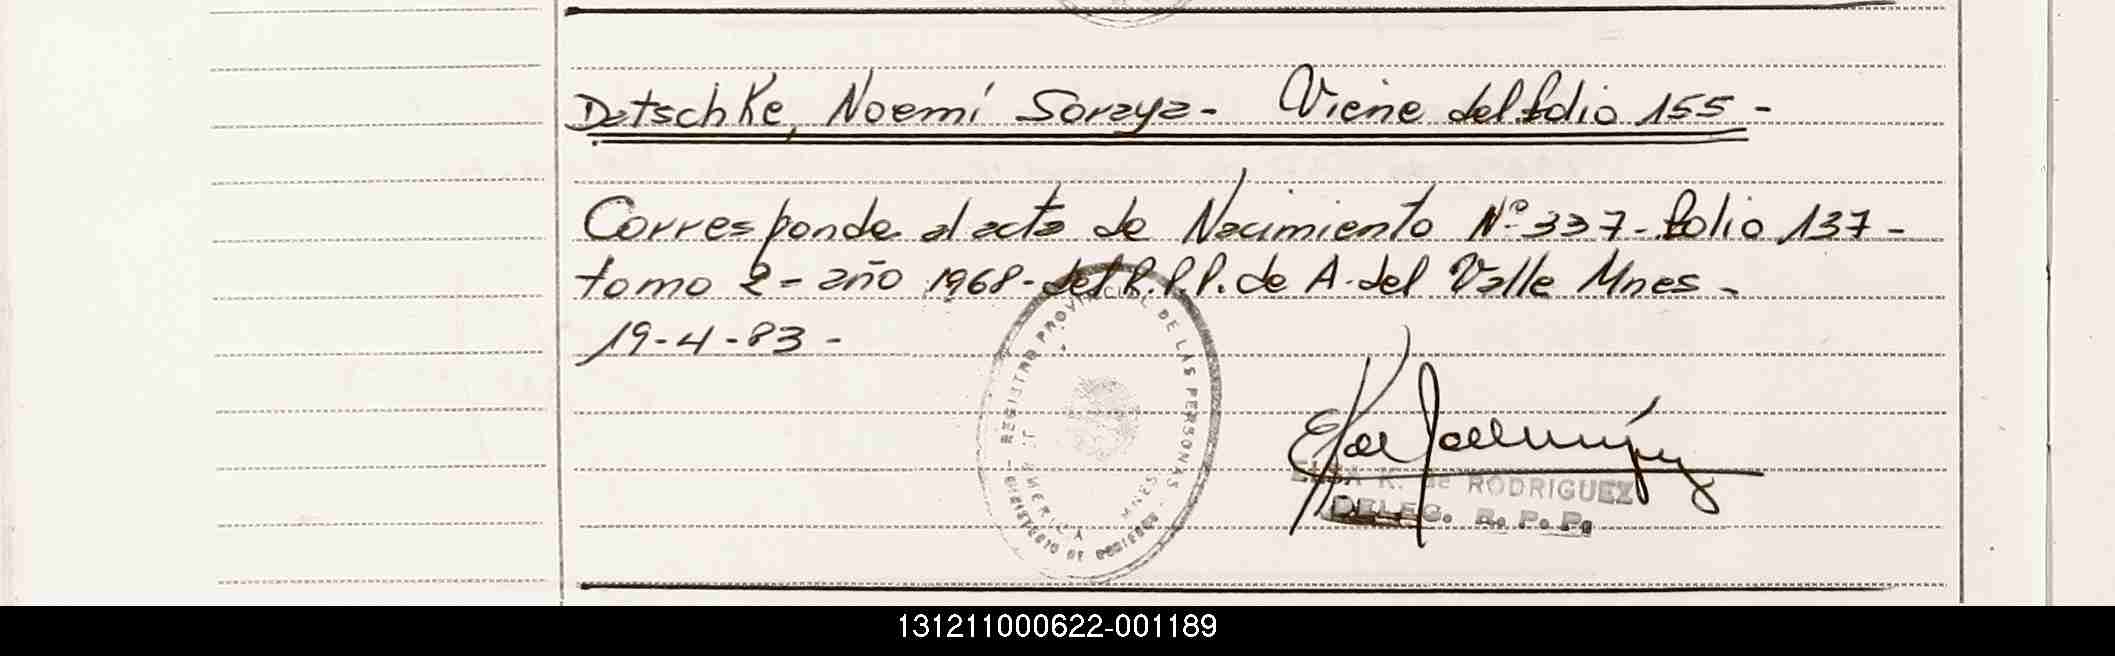 Datschke, Noemí Soraya - Viene del folio 155 -
Corresponde al acta de Nacimiento Nº 337 - folio 137 -
tomo 2 - año 1968 - del R.P.P. de A. del Valle Mnes -
19-4-83 -
REGISTRO PROVINCIAL DE LAS PERSONAS
MNES.
ELSA K. de RODRIGUEZ
DELEG. R. P. P.
131211000622-001189